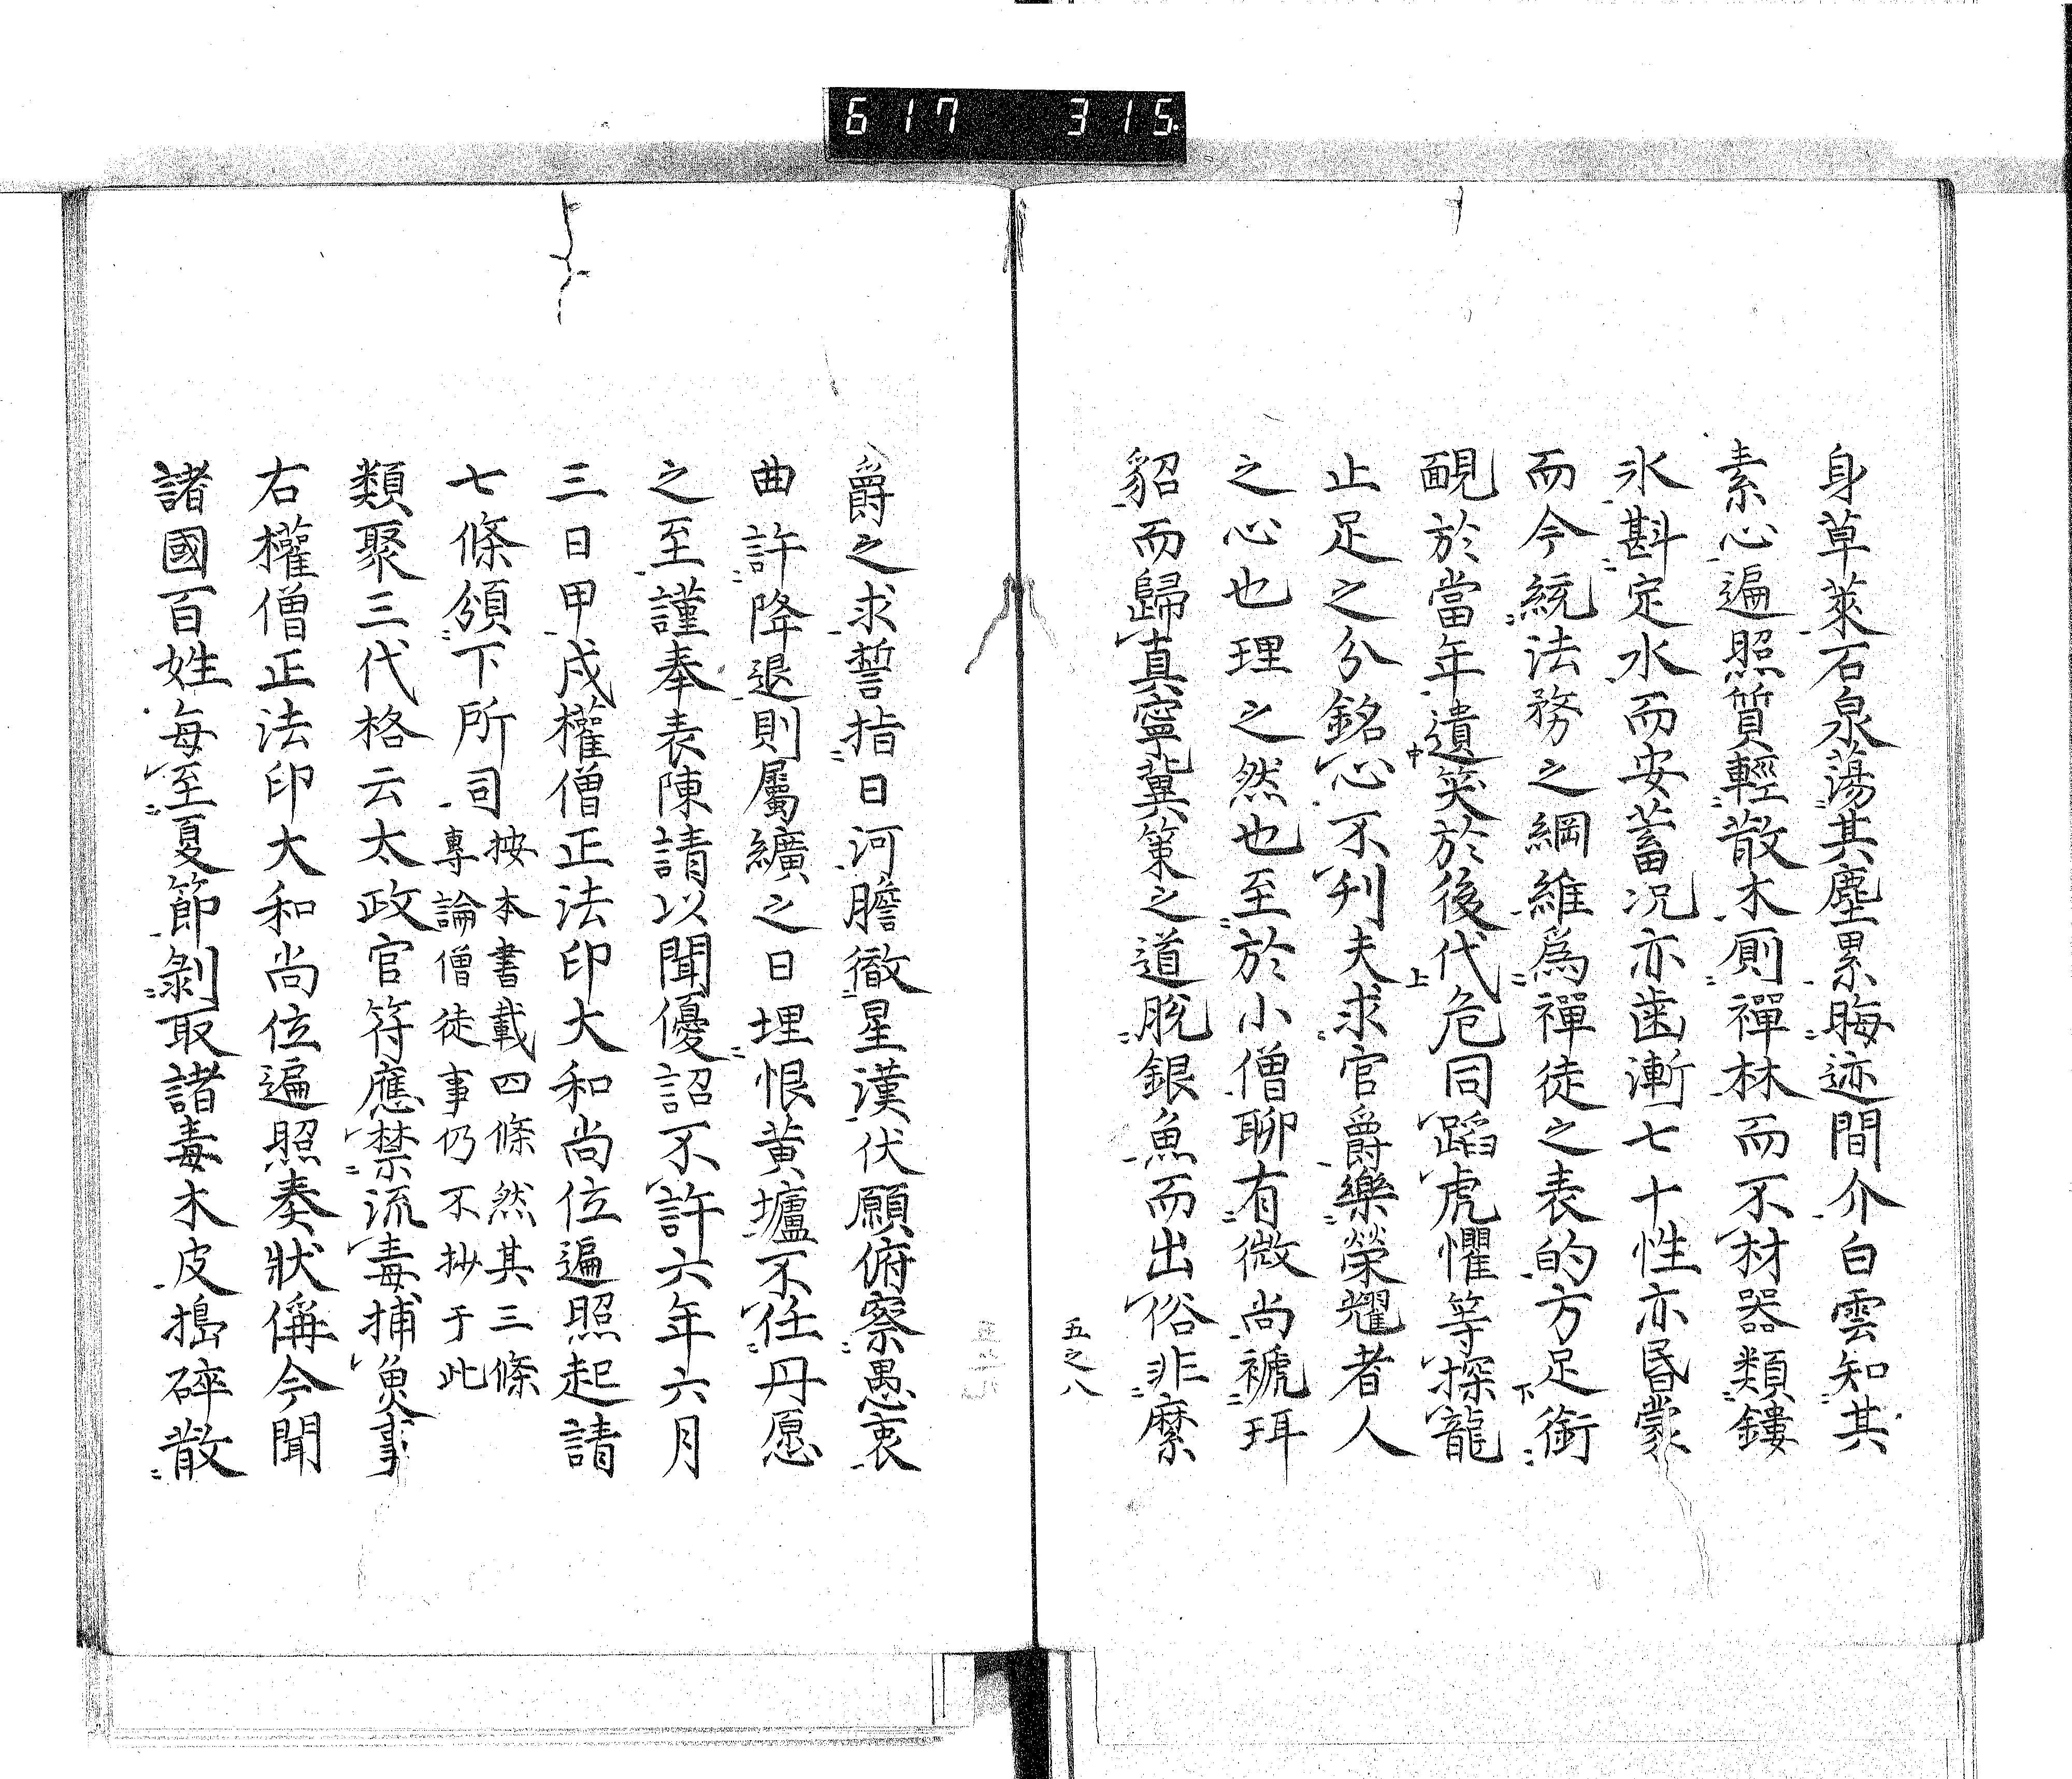 617 315
身草萊石泉蕩其塵累晦迹間介白雲知其
素心遍照質輕散木厠禪林而不材器類鏤
氷斟定水而安蓄况亦歯漸七十性亦昏蒙
而今統法務之綱維爲禪徒之表的方足銜
靦於當年遺笑於後代危同蹈虎懼等探龍
止足之分銘心不刋夫求官爵樂榮耀者人
之心也理之然也至於小僧聊有微尚褫珥
貂而歸真寧冀策之道脫銀魚而出俗非縻
五之八
爵之求誓指日河膽徹星漢伏願俯察愚衷
曲許降退則屬纊之日埋恨黄壚不任丹愿
之至謹奉表陳請以聞優詔不許六年六月
三日甲戌權僧正法印大和尚位遍照起請
七條頒下所司
按本書載四條然其三條
專論僧徒事仍不抄于此
類聚三代格云太政官符應禁流毒捕魚事
右權僧正法印大和尚位遍照奏狀偁今聞
諸國百姓每至夏節剝取諸毒木皮搗碎散